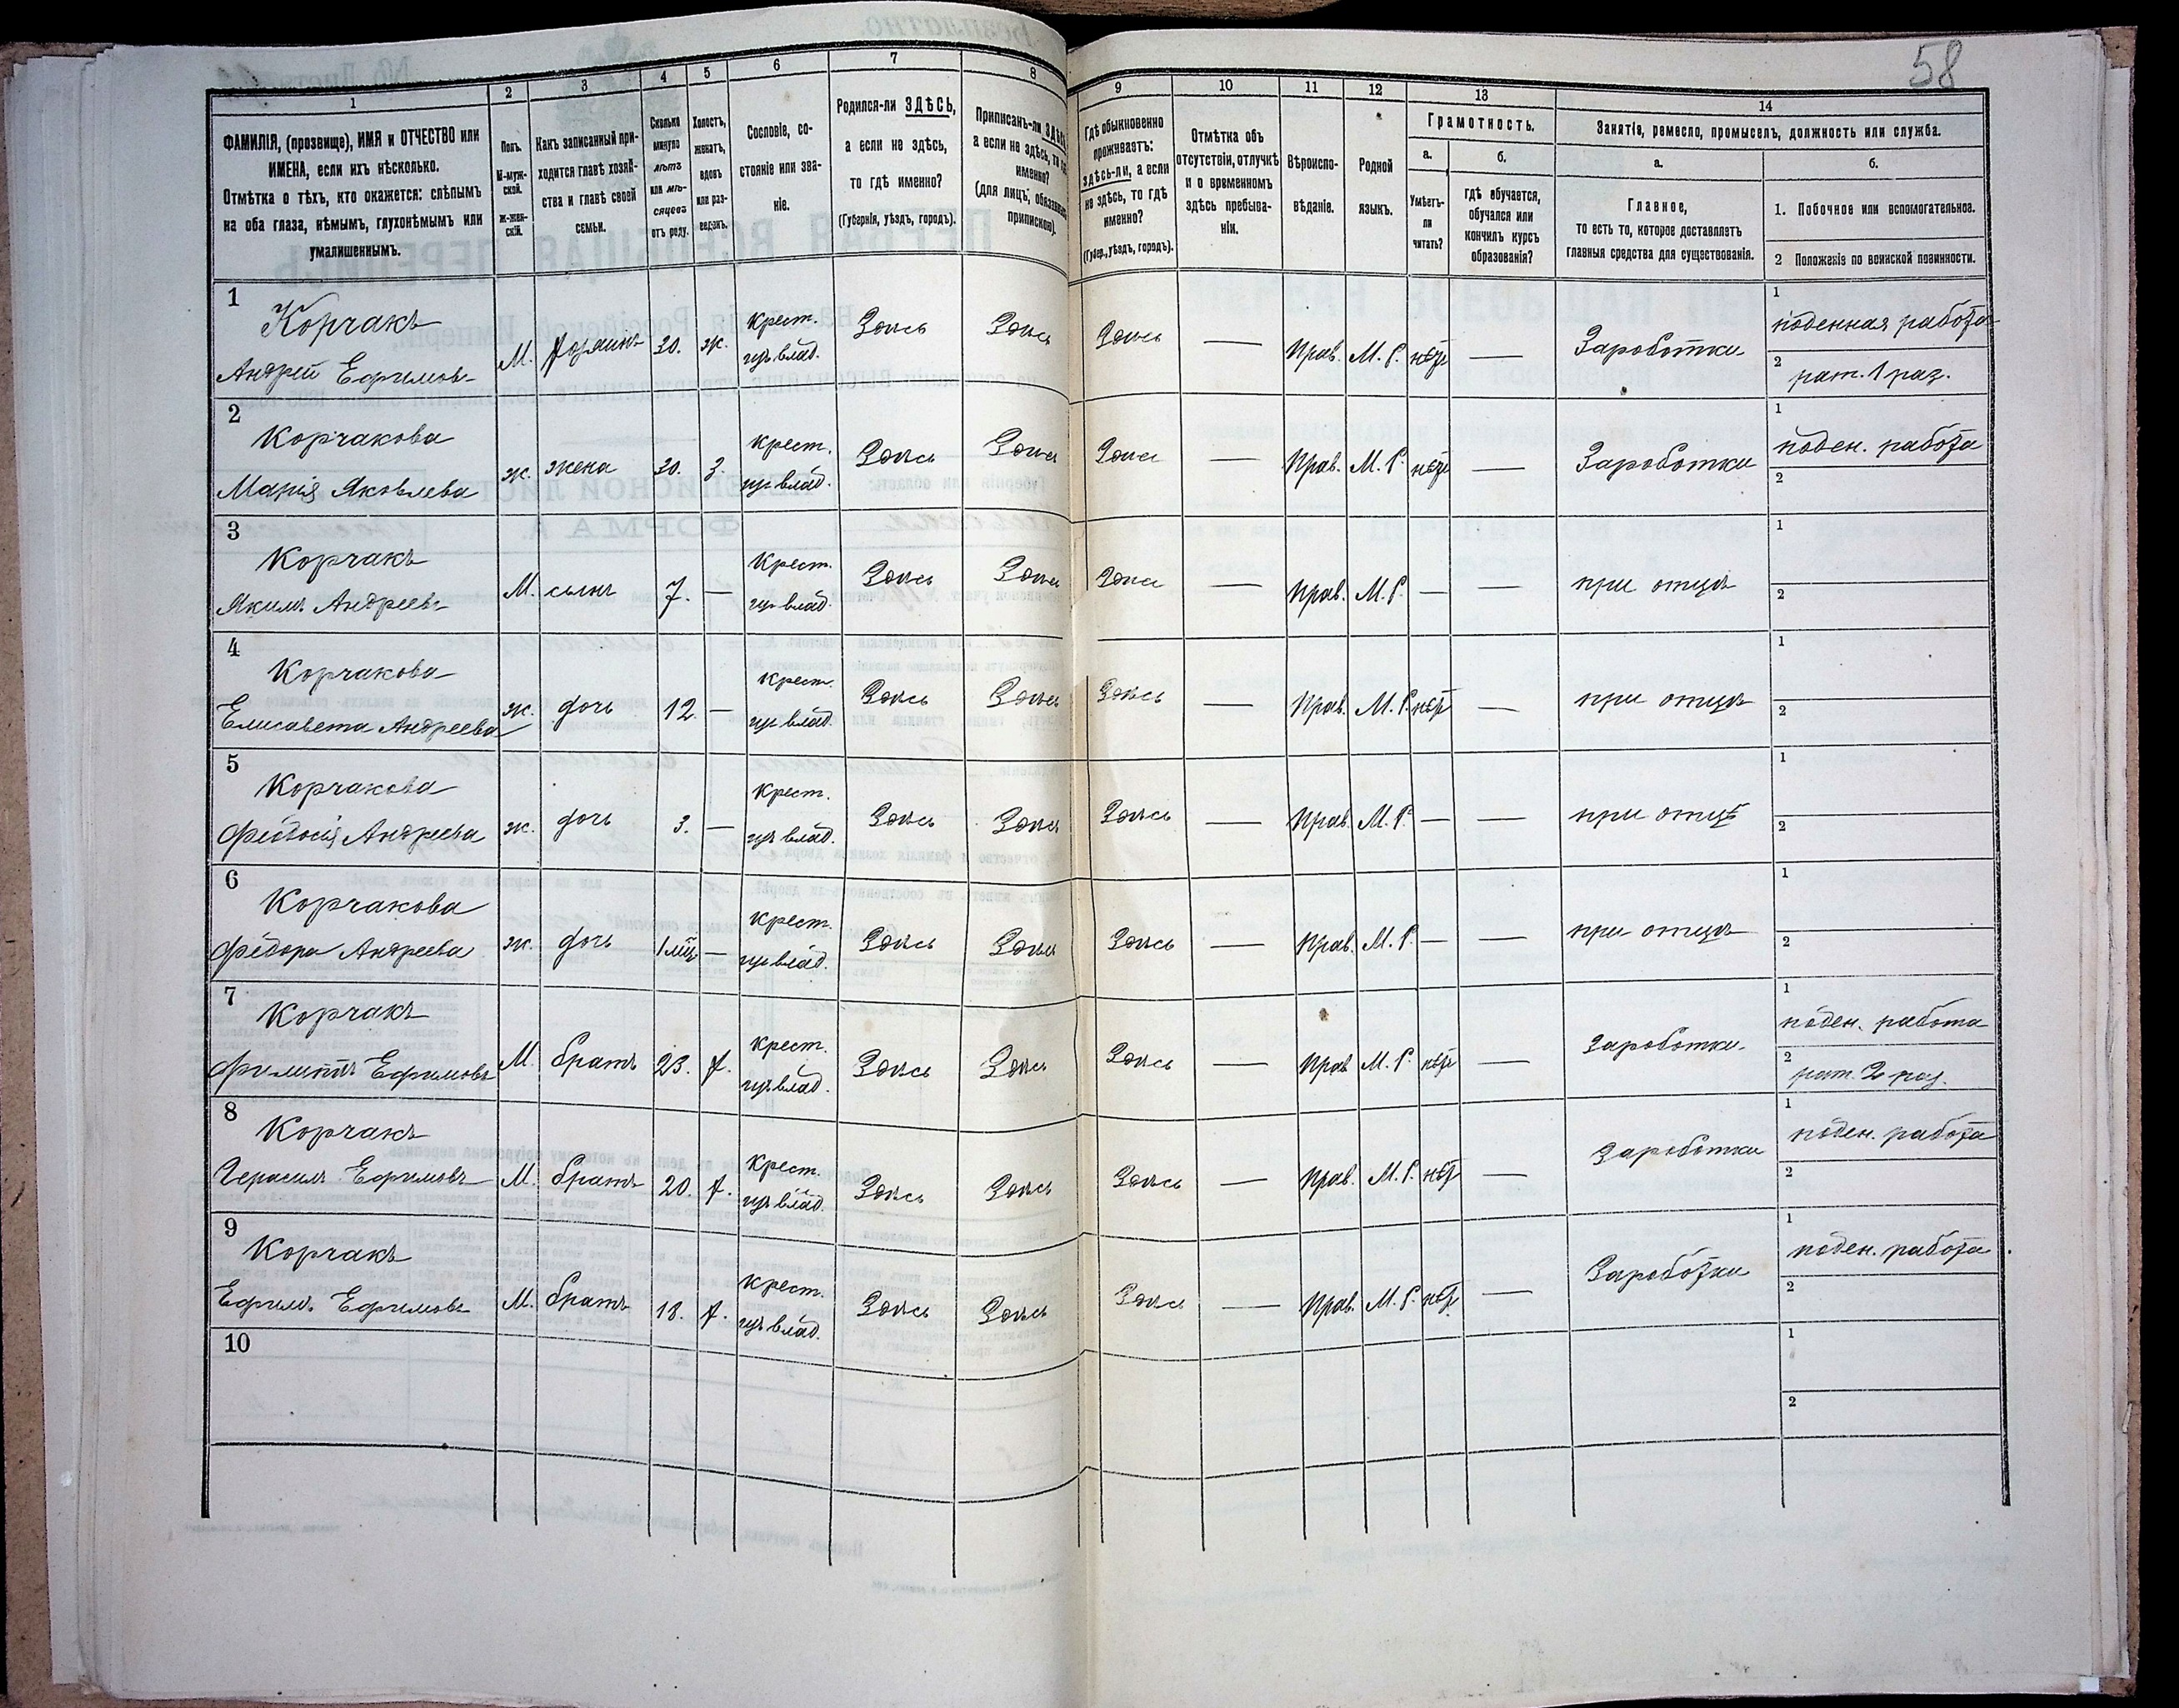 58
1
2
3
4
5
6
7
8
9
10
11
12
13
14
ФАМИЛІЯ, (прозвище), ИМЯ и ОТЧЕСТВО или
ИМЕНА, если ихъ нѣсколько.
Отмѣтка о тѣхъ, кто окажется: слѣпымъ
на оба глаза, нѣмымъ, глухонѣмымъ или
умалишеннымъ.
Полъ.
М-муж-
ской.
Ж-жен-
скій.
Какъ записанный при-
ходится главѣ хозяй-
ства и главѣ своей
семьи.
Сколько
минуло
лѣтъ
или мѣ-
сяцевъ
отъ роду.
Холостъ,
женатъ,
вдовъ
или раз-
веденъ.
Сословіе, со-
стояніе или зва-
ніе.
Родился-ли ЗДѢСЬ,
а если не здѣсь,
то гдѣ именно?
(Губернія, уѣздъ, городъ).
Приписанъ-ли ЗДѢСЬ,
а если не здѣсь, то гдѣ
именно?
(для лицъ, обязанныхъ
припиской).
Гдѣ обыкновенно
проживаетъ:
здѣсь-ли, а если
не здѣсь, то гдѣ
именно?
(Губер., уѣздъ, городъ).
Отмѣтка объ
отсутствіи, отлучкѣ
и о временномъ
здѣсь пребыва-
ніи.
Вѣроиспо-
вѣданіе.
Родной
языкъ.
Грамотность.
а.
б.
Умѣетъ-
ли
читать?
гдѣ обучается,
обучался или
кончилъ курсъ
образованія?
Занятіе, ремесло, промыселъ, должность или служба.
а.
б.
Главное,
то есть то, которое доставляетъ
главныя средства для существованія.
1. Побочное или вспомогательное.
2 Положеніе по воинской повинности.
1
Корчакъ
Андрей Ефимовъ
М. хозяинъ 30. ж. крест. изъ влад. Здѣсь Здѣсь Здѣсь — Прав. М. Р. нѣтъ — Заработки
1 поденная работа
2 рат. 1 раз.
2
Корчакова
Марія Яковлева
ж. жена 30. З. крест. изъ влад. Здѣсь Здѣсь Здѣсь — Прав. М. Р. нѣтъ — Заработки
1 поден. работа
2
3
Корчакъ
Якимъ Андреевъ
М. сынъ 7. — Крест. изъ влад. Здѣсь Здѣсь Здѣсь — Прав. М. Р. — — при отцѣ
1
2
4
Корчакова
Елисавета Андреева
ж. дочь 12. — крест. изъ влад. Здѣсь Здѣсь Здѣсь — Прав. М. Р. нѣтъ — при отцѣ
1
2
5
Корчакова
Федосія Андреева
ж. дочь 3. — Крест. изъ влад. Здѣсь Здѣсь Здѣсь — Прав. М. Р. — — при отцѣ
1
2
6
Корчакова
Федора Андреева
ж. дочь 1 мѣц — крест. изъ влад. Здѣсь Здѣсь Здѣсь — Прав. М. Р. — — при отцѣ
1
2
7
Корчакъ
Филиппъ Ефимовъ
М. братъ 23. х. крест. изъ влад. Здѣсь Здѣсь Здѣсь — Прав М. Р. нѣтъ — Заработки
1 поден. работа
2 рат. 2 раз.
8
Корчакъ
Герасимъ Ефимовъ
М. братъ 20. х. Крест. изъ влад. Здѣсь Здѣсь Здѣсь — Прав. М. Р. нѣтъ — Заработки
1 поден. работа
2
9
Корчакъ
Ефимъ Ефимовъ
М. братъ 18. х. крест. изъ влад. Здѣсь Здѣсь Здѣсь — Прав. М. Р. нѣтъ — Заработки
1 поден. работа
2
10
1
2